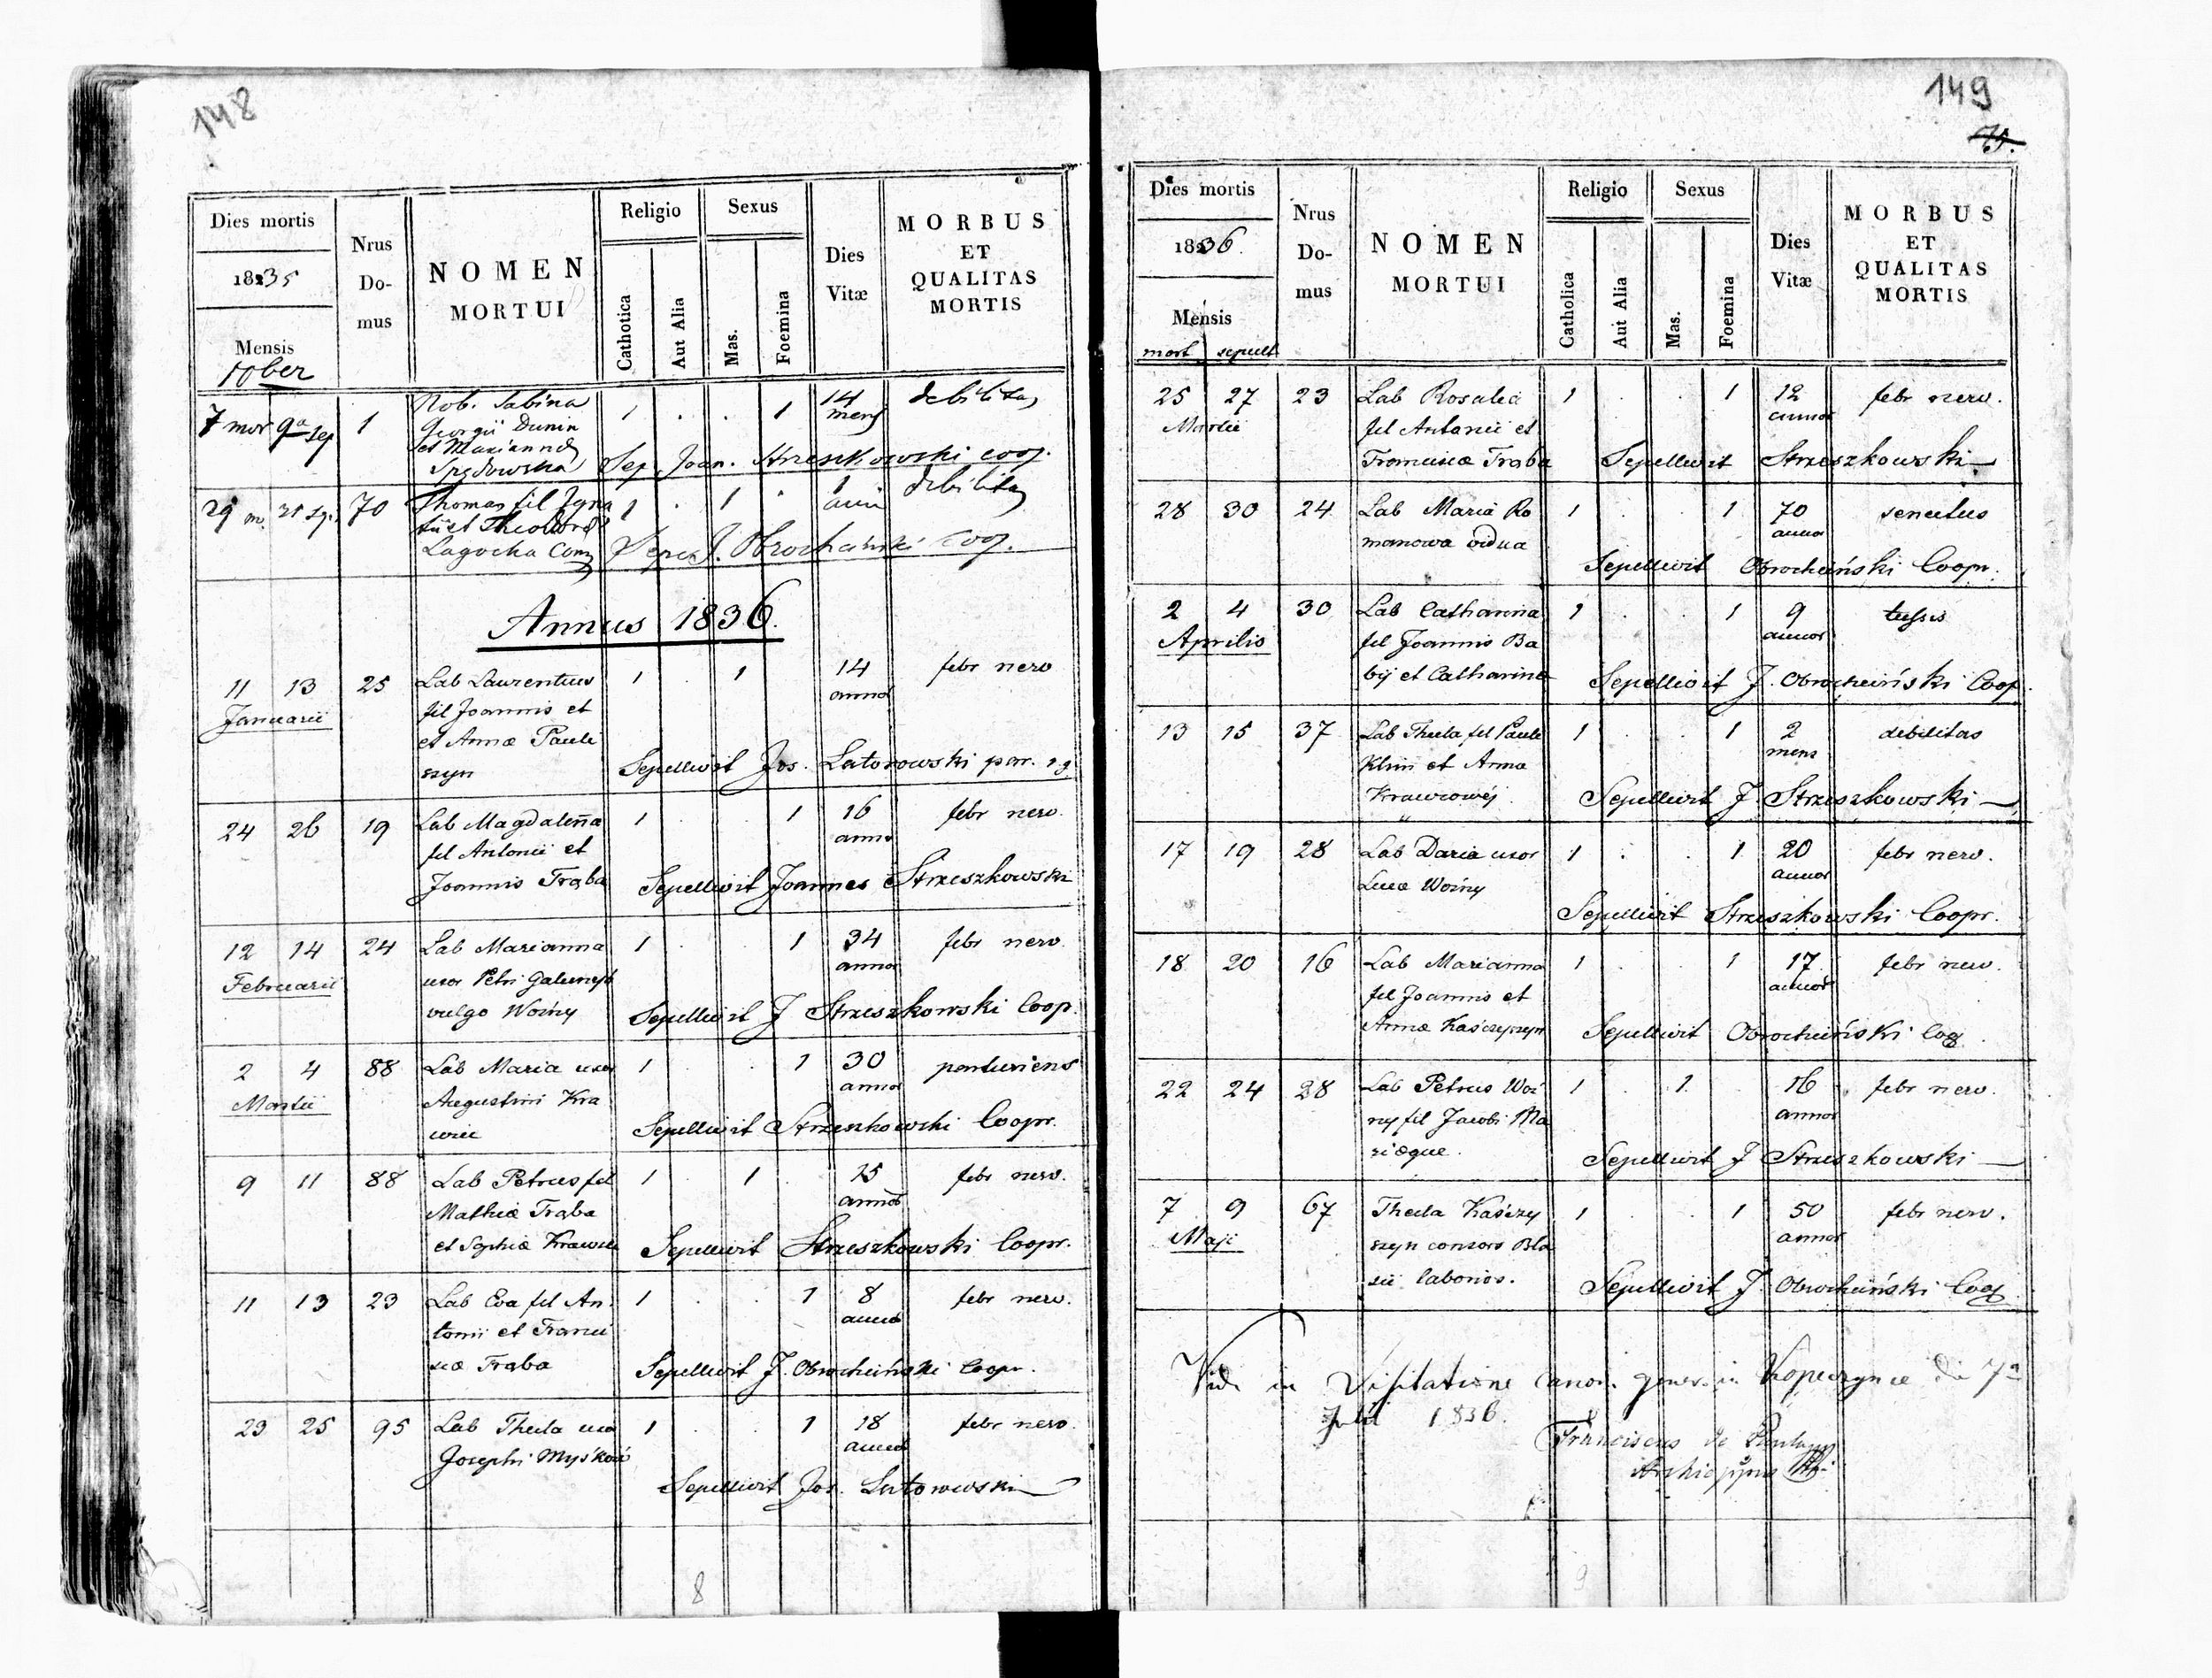 148
Dies mortis
1835
Mensis
10ber
Nrus Do-mus
NOMEN
MORTUI
Religio
Catholica
Aut Alia
Sexus
Mas.
Foemina
Dies Vitæ
MORBUS
ET
QUALITAS
MORTIS
7 mor 9a sep 1 Nob. Sabina 1 . . 1 14 mens debilitas
Georgii Dunin
et Mariannæ
Sep. Joan. Strzeszkowski coop.
29 m. 31 sep. 70 Thomas fil Igna 1 . 1 . 1 anni debilitas
tii et Theodoræ
Lagocka
Sep. J. Obrocheński coop.
Annus 1836.
11 13 25 Lab Laurentius 1 . 1 14 annor febr nerv
Januarii
fil Joannis et
et Annæ Pauli
szyn
Sepellivit Jos. Latorowski par.
24 26 19 Lab Magdalena 1 . . 1 16 annor febr nerv.
fil Antonii et
Joannis Traba
Sepellivit Joannes Strzeszkowski
12 14 24 Lab Marianna 1 . . 1 34 annor febr nerv.
Februarii
uxor Petri
vulgo Woźny
Sepellivit J Strzeszkowski Coop.
2 4 88 Lab Maria uxor 1 . . 1 30 annor parturiens
Martii
Augustini Kra
wiec
Sepellivit Strzeszkowski Coopr.
9 11 88 Lab Petrus fil 1 . 1 . 15 annor febr nerv.
Mathiæ Traba
et Sophiæ
Sepellivit Strzeszkowski Coopr.
11 13 23 Lab Eva fil An- 1 . . 1 8 annor febr nerv.
tonii et Franci
scæ Traba
Sepellivit J. Obrocheiński Coopr.
23 25 95 Lab Thecla uxor 1 . . 1 18 annor febr nerv.
Josephi
Sepellivit Jos. Latorowski
8
149
75.
Dies mortis
1836.
Mensis
mort sepult
Nrus Do-mus
NOMEN
MORTUI
Religio
Catholica
Aut Alia
Sexus
Mas.
Foemina
Dies Vitæ
MORBUS
ET
QUALITAS
MORTIS
25 27 23 Lab Rosalia 1 . . 1 12 annor febr nerv.
Martii
fil Antonii et
Franciscæ Traba
Sepellivit Strzeszkowski
28 30 24 Lab Maria Ro 1 . . 1 70 annor senectus
manowa vidua
Sepellivit Obrocheiński Coopr.
2 4 30 Lab Catharina 1 . . 1 9 annor tussis
Aprilis
fil Joannis Ba
bij et Catharinæ
Sepellivit J. Obrocheiński Coop.
13 15 37 Lab Thecla fil Pauli 1 . . 1 2 mens debilitas
Klim et Anna
Krawcowéj
Sepellivit J. Strzeszkowski
17 19 28 Lab Daria uxor 1 . . 1 20 annor febr nerv.
Lucæ Woźny
Sepellivit Strzeszkowski Coopr.
18 20 16 Lab Marianna 1 . . 1 17 annor febr nerv.
fil Joannis et
Annæ
Sepellivit Obrocheiński Coop
22 24 28 Lab Petrus Woź 1 . 1. 16 annor febr nerv.
ny fil Jacobi Ma
riæque.
Sepellivit J Strzeszkowski
7 9 67 Thecla Kaśczy 1 . . 1 50 annor febr nerv.
Maji
szyn consors Bla
sii laborios.
Sepellivit J. Obrocheiński Coop
Vidi in Visitatione canon. gener. in die 7a
Julii 1836.
Franciscus de
9